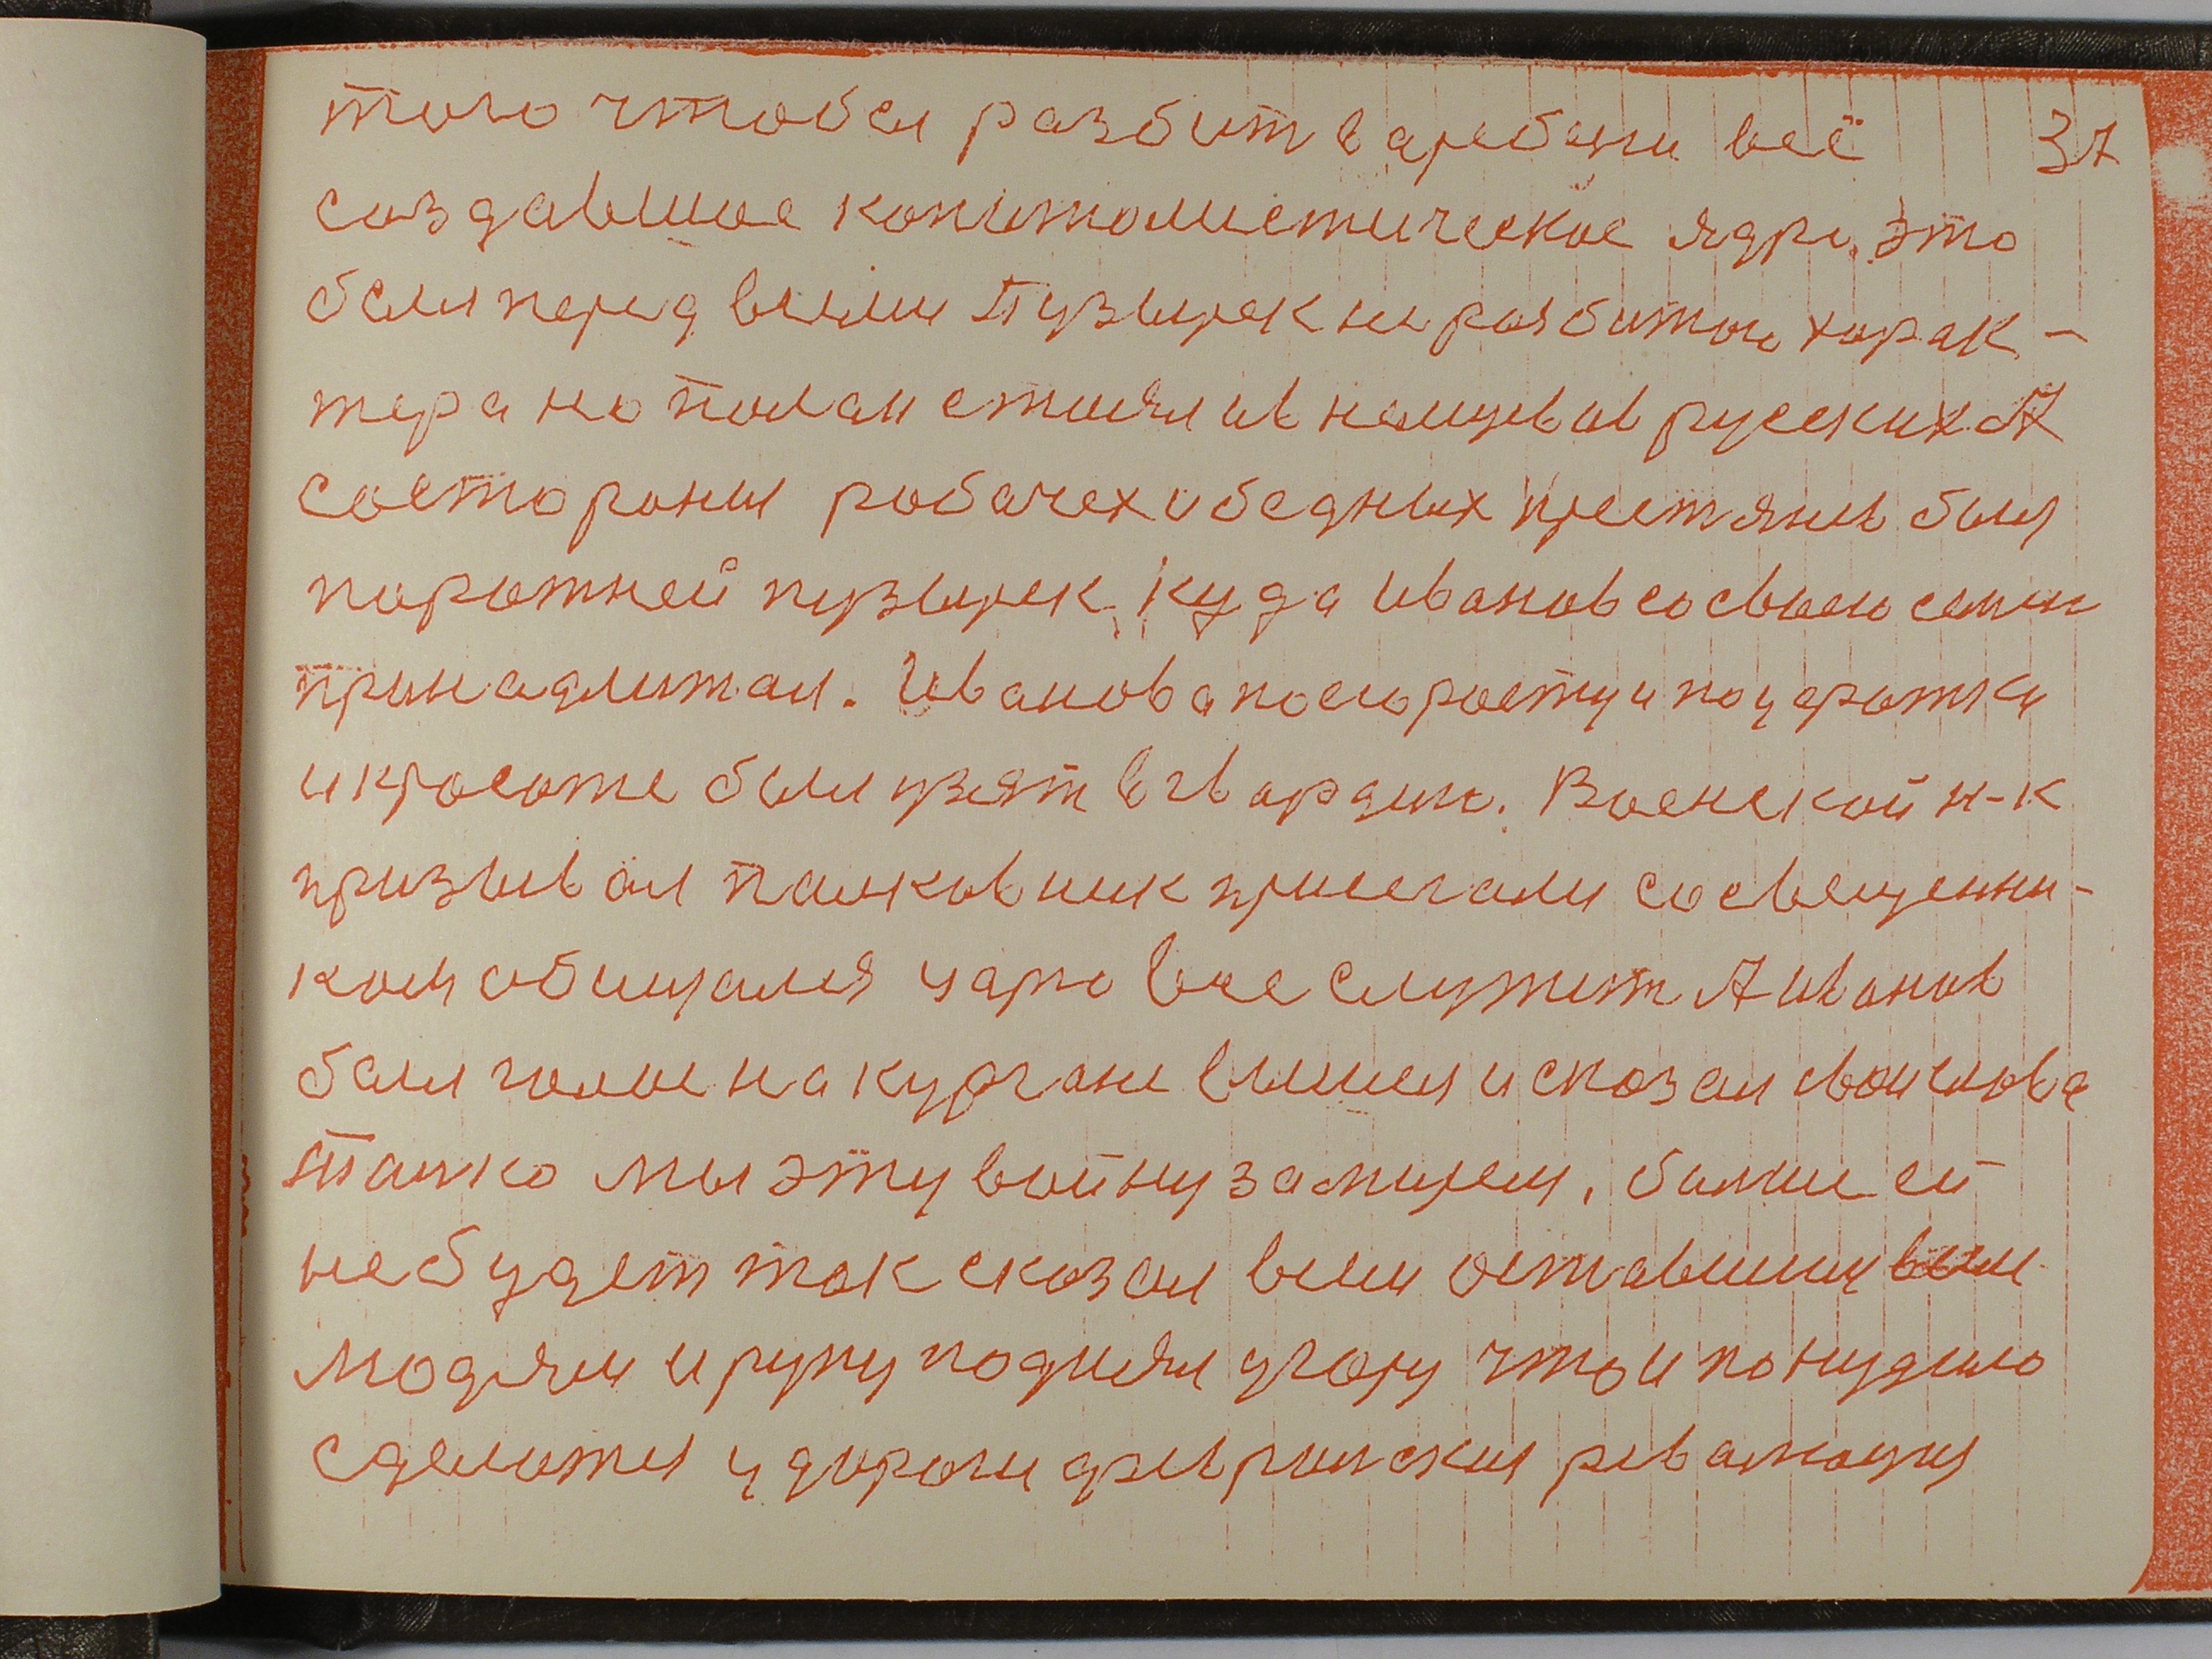 того чтобы разбит в дребезги всё 37
создавшое копитолистическое ядро, это
был перед всеми пузырек не розбитого харак-
тера но полон стоял и в немцев и в русских А
состороны робочех и бедных крестянь был
порожней пузырек, куда Иванов со свъею семьи
принадлижал. Иванова по его росту и по уродтки
и кросоте были узят в гвардию. Военской н-к
призывал полковник присегали со свещенни-
ком обищался царю все служит А иванов
был голос на кургане вышел и сказал свои слова
только мы эту войну замирем, больше ей
не будет так сказал всем оставшимы всем
людям и руку поднял угору что и понудило
сделатся у дороги февральския революция